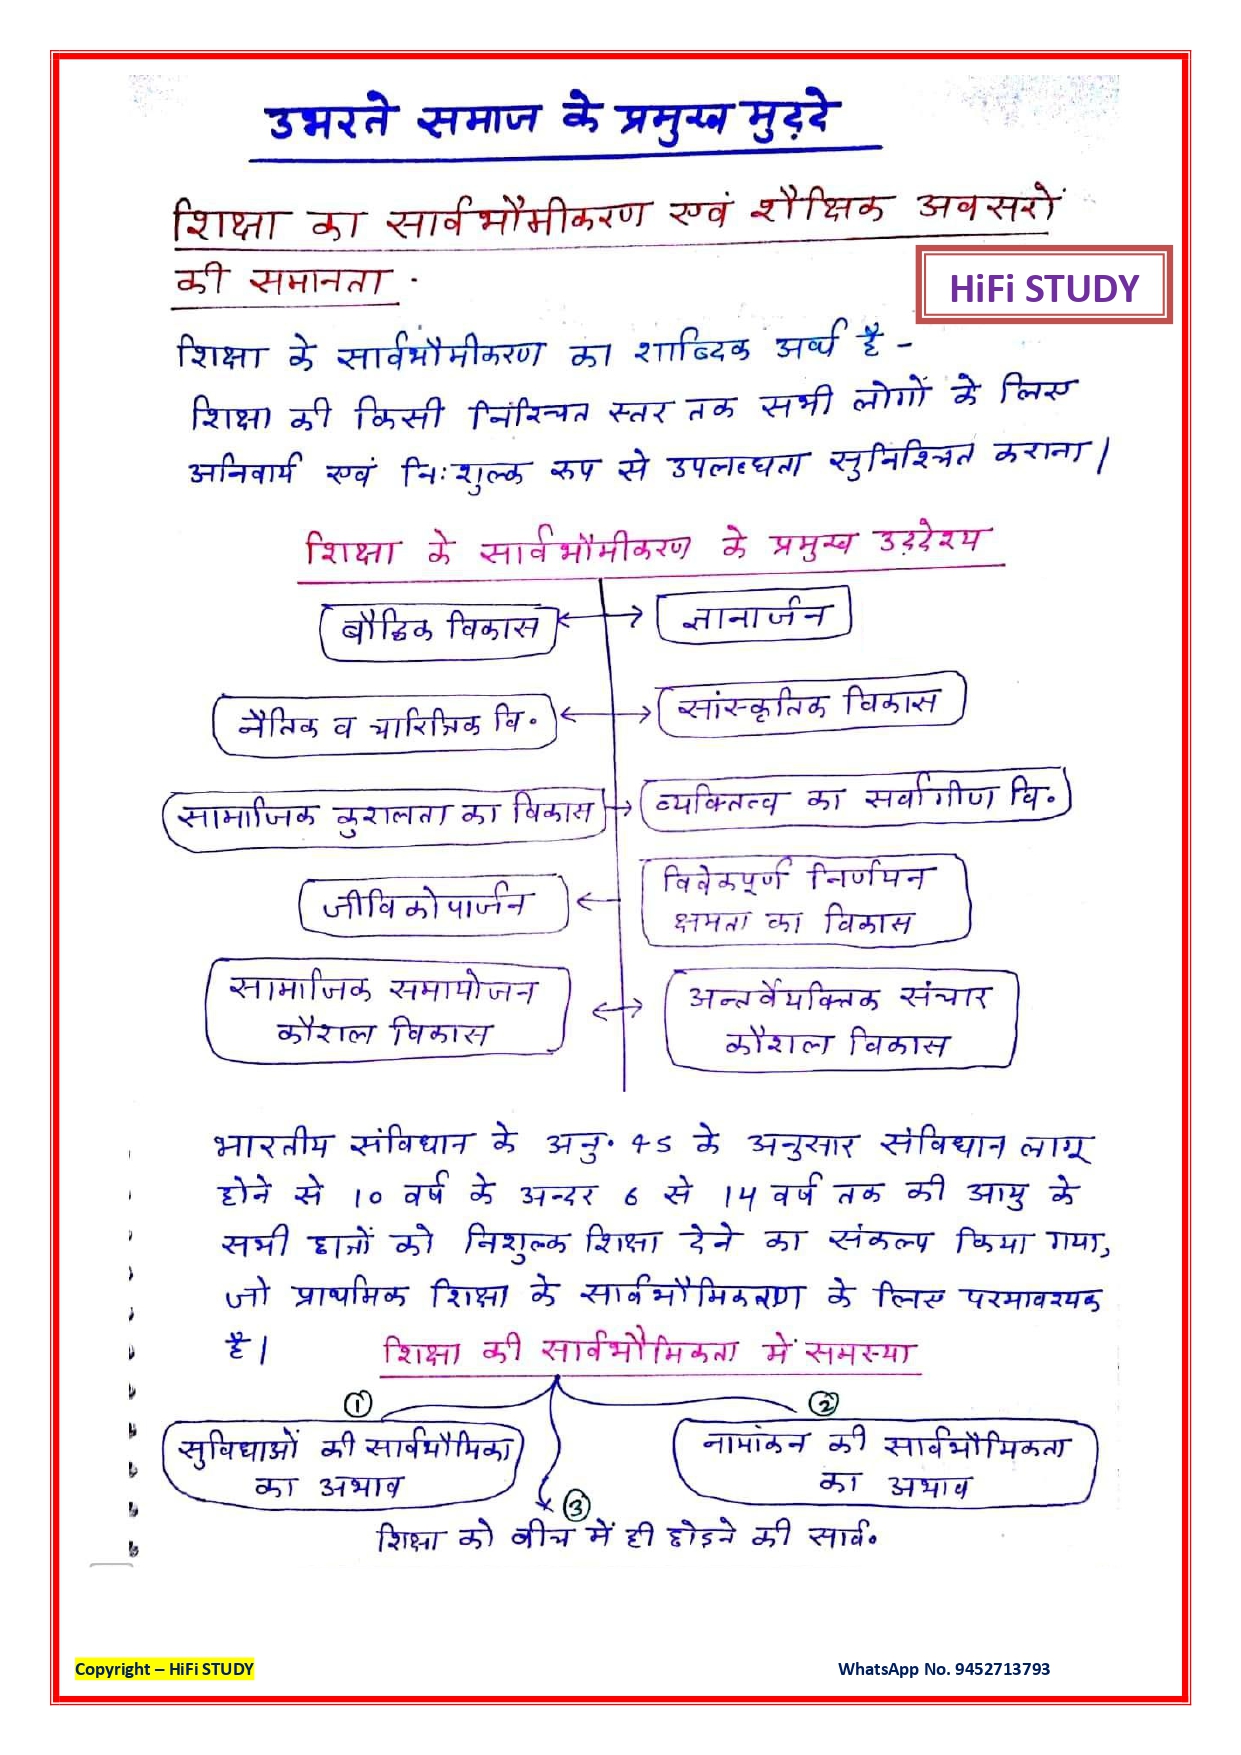 उभरते समाज के प्रमुख मुद्दे
शिक्षा का सार्वभौमीकरण एवं शैक्षिक अवसरों
की समानता -
HiFi STUDY
शिक्षा के सार्वभौमीकरण का शाब्दिक अर्थ है -
शिक्षा की किसी निश्चित स्तर तक सभी लोगों के लिए
अनिवार्य एवं निःशुल्क रूप से उपलब्धता सुनिश्चित कराना।
शिक्षा के सार्वभौमीकरण के प्रमुख उद्देश्य
बौद्धिक विकास
ज्ञानार्जन
नैतिक व चारित्रिक वि.
सांस्कृतिक विकास
सामाजिक कुशलता का विकास
व्यक्तित्व का सर्वांगीण वि.
जीविकोपार्जन
विवेकपूर्ण निर्णयन
क्षमता का विकास
सामाजिक समायोजन
कौशल विकास
अन्तर्वैयक्तिक संचार
कौशल विकास
भारतीय संविधान के अनु. 45 के अनुसार संविधान लागू
होने से 10 वर्ष के अन्दर 6 से 14 वर्ष तक की आयु के
सभी छात्रों को निशुल्क शिक्षा देने का संकल्प किया गया,
जो प्राथमिक शिक्षा के सार्वभौमिकरण के लिए परमावश्यक
है।
शिक्षा की सार्वभौमिकता में समस्या
1
2
सुविधाओं की सार्वभौमिका
का अभाव
नामांकन की सार्वभौमिकता
का अभाव
3
शिक्षा को बीच में ही छोड़ने की सार्व.
Copyright – HiFi STUDY
WhatsApp No. 9452713793